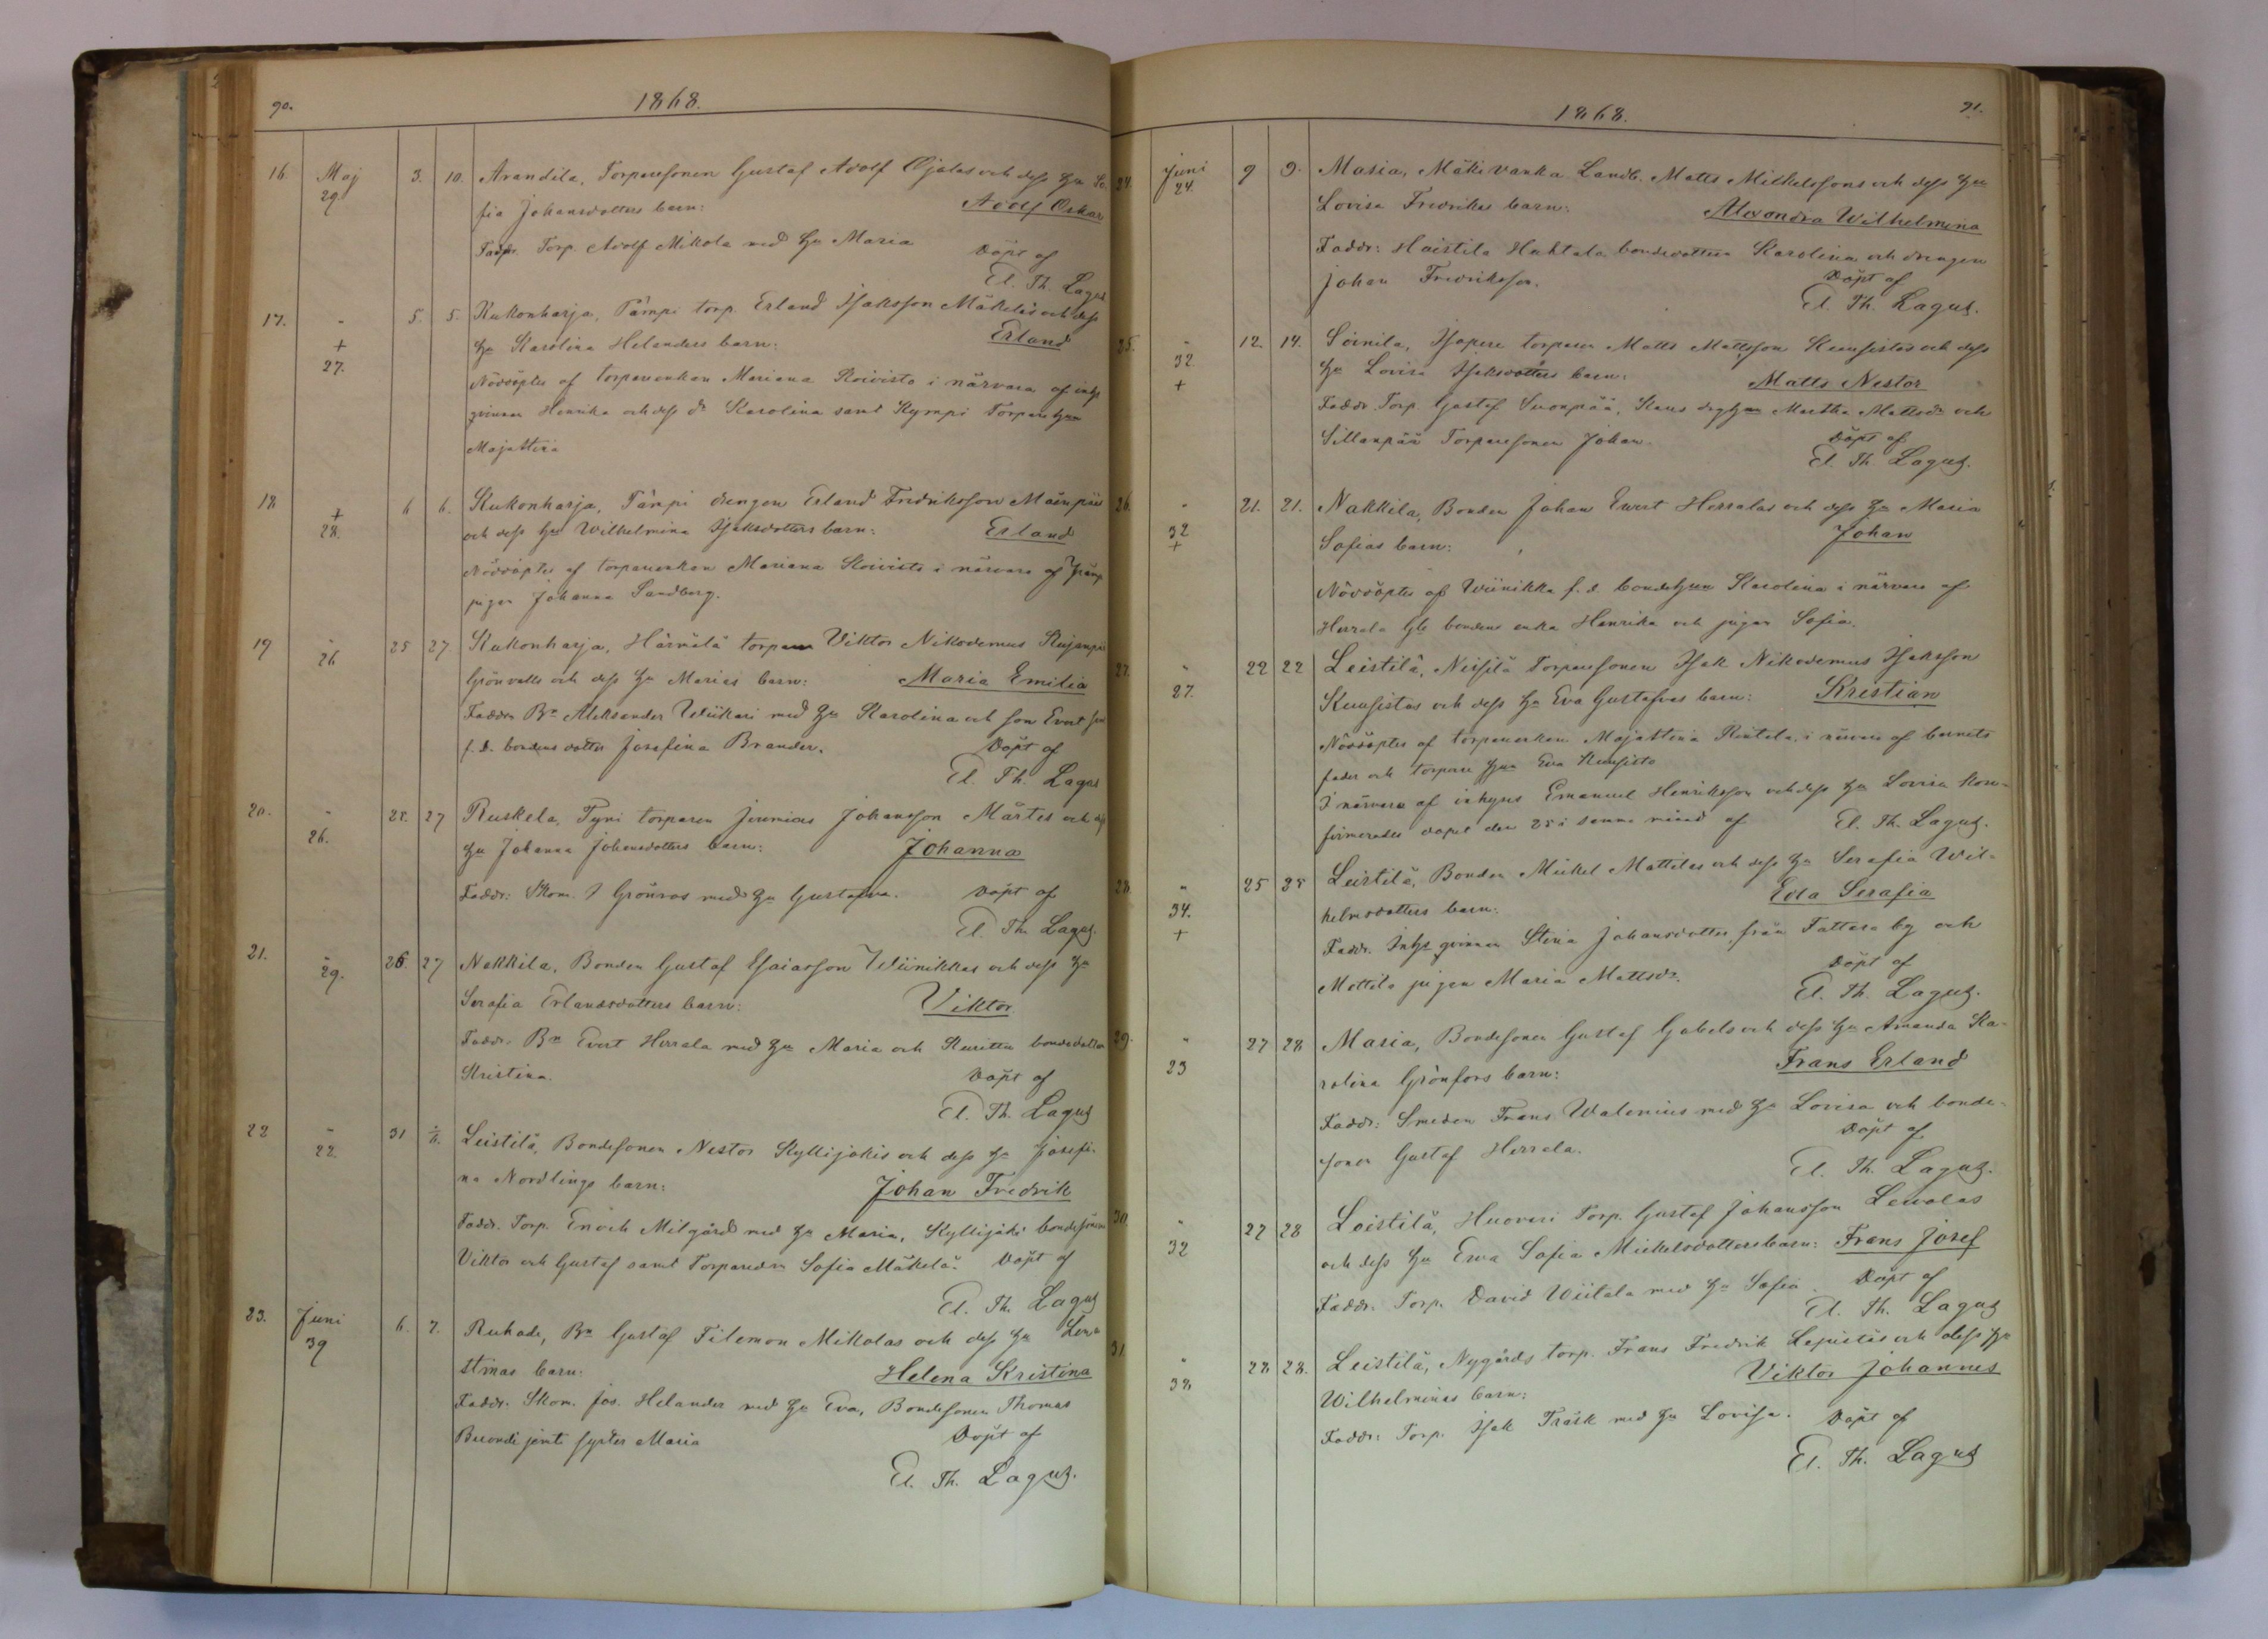 90.
1868.
16. Maj 29 3. 10. Arandila, Torparesonen Gustaf Adolf Ojalas och dess hu So-
fia Johansdotters barn: Adolf Oskar
Faddr. Torp. Adolf Mikola med hu Maria Döpt af
El. Th. Lagus
17. - + 27. 5. 5. Kukonharja, Pämpi torp. Erland Isaksson Mäkeläs och dess
hu Karolina Helanders barn: Erland
Nöddöptes af torpareenkan Mariana Koivisto i närvaro af inhys
qvinnan Henrika och dess dr Karolina samt Kympi Torpare hun
Majastina
18 + 28. 6 6. Kukonharja, Pämpi drengen Erland Fredriksson Mäenpääs
och dess hu Wilhelmina Isaksdotters barn: Erland
Nöddöptes af torpareenkan Mariana Koivisto i närvaro af
pigan Johanna Sandberg.
19 - 26 25 27 Kukonharja, Härmälä torparen Viktor Nikodemus Kujanpää
Grönvalls och dess hu Marias barn: Maria Emilia
Faddr. Bn Aleksander Wiikari med hu Karolina och son Evert samt
f.d. bondens dotter Josefina Brander. Döpt af
El. Th. Lagus
20. - 26. 25. 27 Ruskela, Tyni torparen Jeremias Johansson Märtes och dess
hu Johanna Johansdotters barn: Johanna
Faddr: Skom. J Grönros med hu Gustafva. Döpt af
El. Th. Lagus.
21. - 29. 26. 27 Nakkila, Bonden Gustaf Esaiasson Wiinikkas och dess hu
Serafia Erlandsdotters barn: Viktor
Faddr. Bn Evert Herrala med hu Maria och Kuritta bondedotter
Kristina. Döpt af
El. Th. Lagus
22 - 22. 31 1/6. Leistilä, Bondesonen Nestor Kyllijokis och dess hu Josefi-
na Nordlings barn: Johan Fredrik
Faddr. Torp. Enoch Milgård med hu Maria, Kyllijoki bondesönerna
Viktor och Gustaf samt Torparedn Sofia Mäkelä. Döpt af
El. Th. Lagus
23. Juni 39 6. 7. Ruhade, Bn Gustaf Filemon Mikolas och dess hu Lena
Stinas barn: Helena Kristina
Faddr. Skom. Jos. Helander med hu Eva, Bondesonen Thomas
jemte syster Maria Döpt af
El. Th. Lagus.
1868. 91.
24. Juni 24. 9 9. Masia, Mäkivanka Landb. Matts Mickelssons och dess hu
Lovisa Fredrikas barn: Alexandra Wilhelmina
Faddr: Haistila Hahtala bondedottren Karolina och drengen
Johan Fredriksson. Döpt af
El. Th. Lagus.
25. - 32 + 12. 14. Soinila, Isopere torparen Matts Mattsson Kuusistos och dess
hu Lovisa Isaksdotters barn: Matts Nestor
Faddr. Torp. Gustaf Suonpää, hun Martha Mattsdr och
Sillanpää Torparesonen Johan. Döpt af
El. Th. Lagus.
26. - 32 + 21. 21. Nakkila, Bonden Johan Evert Herralas och dess hu Maria
Sofias barn: Johan
Nöddöptes af Wiinikka f.d. bondehun Karolina i närvaro af
Herrala bondens enka Henrika och pigan Sofia.
27. - 27. 22 22 Leistilä, Neisilä Torparesonen Isak Nikodemus Isaksson
Kuusistos och dess hu Eva Gustafvas barn: Kristian
Nöddöptes af torpareenkan Majastina Rintala i närvaro af barnets
fader och torpare hun Eva Kuusisto
I närvaro af inhyses Emanuel Henriksson och dess hu Lovisa kon-
firmerades dopet den 25 i samma månad af El. Th. Lagus.
28. - 34. + 25 25 Leistilä, Bonden Mickel Mattilas och dess hu Serafia Wil-
helmsdotters barn: Eda Serafia
Faddr. Inhys qvinnan Stina Johansdotter från Tattara by och
Mattila pigan Maria Mattsdr. Döpt af
El. Th. Lagus.
29. - 23 27 28 Masia, Bondesonen Gustaf Gabels och dess hu Amanda Ka-
rolina Grönfors barn: Frans Erland
Faddr: Smeden Frans Walenius med hu Lovisa och bonde-
sonen Gustaf Herrala. Döpt af
El. Th. Lagus.
30. - 32 27 28 Leistilä, Huovari Torp. Gustaf Johansson Levolas
och dess hu Ewa Sofia Mickelsdotters barn: Frans Josef
Faddr. Torp. David Wiitala med hu Sofia. Döpt af
El. Th. Lagus
31. - 38 28 28. Leistilä, Nygårds torp. Frans Fredrik Lepistös och dess hu
Wilhelminas barn: Viktor Johannes
Faddr: Torp. Isak Träsk med hu Lovisa. Döpt af
El. Th. Lagus